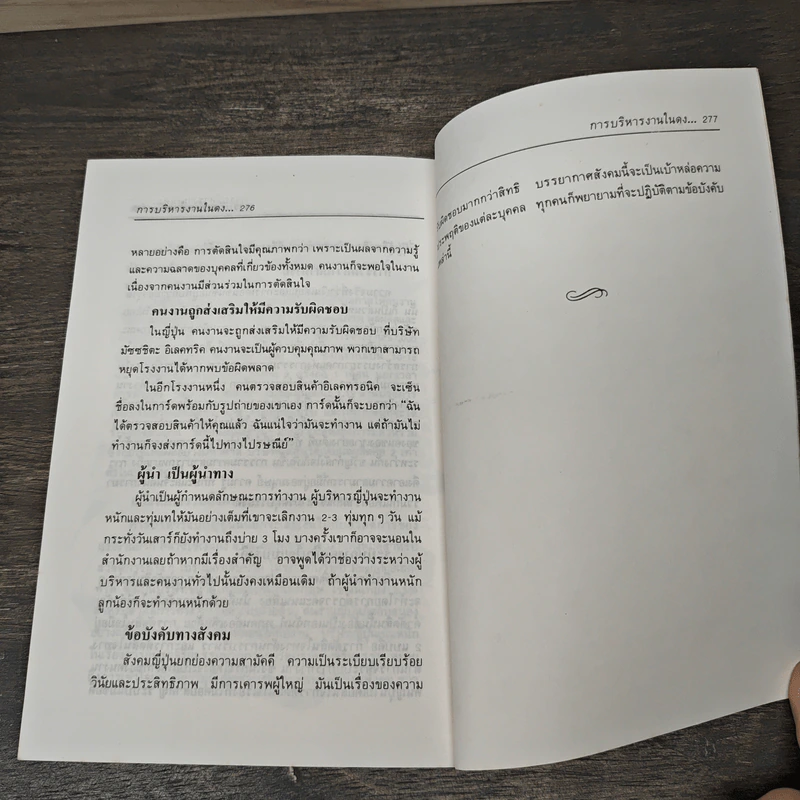 การบริหารงานในดง... 276
หลายอย่างคือ การตัดสินใจมีคุณภาพกว่า เพราะเป็นผลจากความรู้
และความฉลาดของบุคคลที่เกี่ยวข้องทั้งหมด คนงานก็จะพอใจในงาน
เนื่องจากคนงานมีส่วนร่วมในการตัดสินใจ
คนงานถูกส่งเสริมให้มีความรับผิดชอบ
ในญี่ปุ่น คนงานจะถูกส่งเสริมให้มีความรับผิดชอบ ที่บริษัท
มัซซชิตะ อิเลคทริค คนงานจะเป็นผู้ควบคุมคุณภาพ พวกเขาสามารถ
หยุดโรงงานได้หากพบข้อผิดพลาด
ในอีกโรงงานหนึ่ง คนตรวจสอบสินค้าอิเลคทรอนิค จะเซ็น
ชื่อลงในการ์ดพร้อมกับรูปถ่ายของเขาเอง การ์ดนั้นก็จะบอกว่า “ฉัน
ได้ตรวจสอบสินค้าให้คุณแล้ว ฉันแน่ใจว่ามันจะทำงาน แต่ถ้ามันไม่
ทำงานก็จงส่งการ์ดนี้ไปทางไปรษณีย์”
ผู้นำ เป็นผู้นำทาง
ผู้นำเป็นผู้กำหนดลักษณะการทำงาน ผู้บริหารญี่ปุ่นจะทำงาน
หนักและทุ่มเทให้มันอย่างเต็มที่เขาจะเลิกงาน 2-3 ทุ่มทุก ๆ วัน แม้
กระทั่งวันเสาร์ก็ยังทำงานถึงบ่าย 3 โมง บางครั้งเขาก็อาจจะนอนใน
สำนักงานเลยถ้าหากมีเรื่องสำคัญ อาจพูดได้ว่าช่องว่างระหว่างผู้
บริหารและคนงานทั่วไปนั้นยังคงเหมือนเดิม ถ้าผู้นำทำงานหนัก
ลูกน้องก็จะทำงานหนักด้วย
ข้อบังคับทางสังคม
สังคมญี่ปุ่นยกย่องความสามัคคี ความเป็นระเบียบเรียบร้อย
วินัยและประสิทธิภาพ มีการเคารพผู้ใหญ่ มันเป็นเรื่องของความ
การบริหารงานในดง... 277
รับผิดชอบมากกว่าสิทธิ บรรยากาศสังคมนี้จะเป็นเบ้าหล่อความ
ประพฤติของแต่ละบุคคล ทุกคนก็พยายามที่จะปฏิบัติตามข้อบังคับ
เหล่านี้